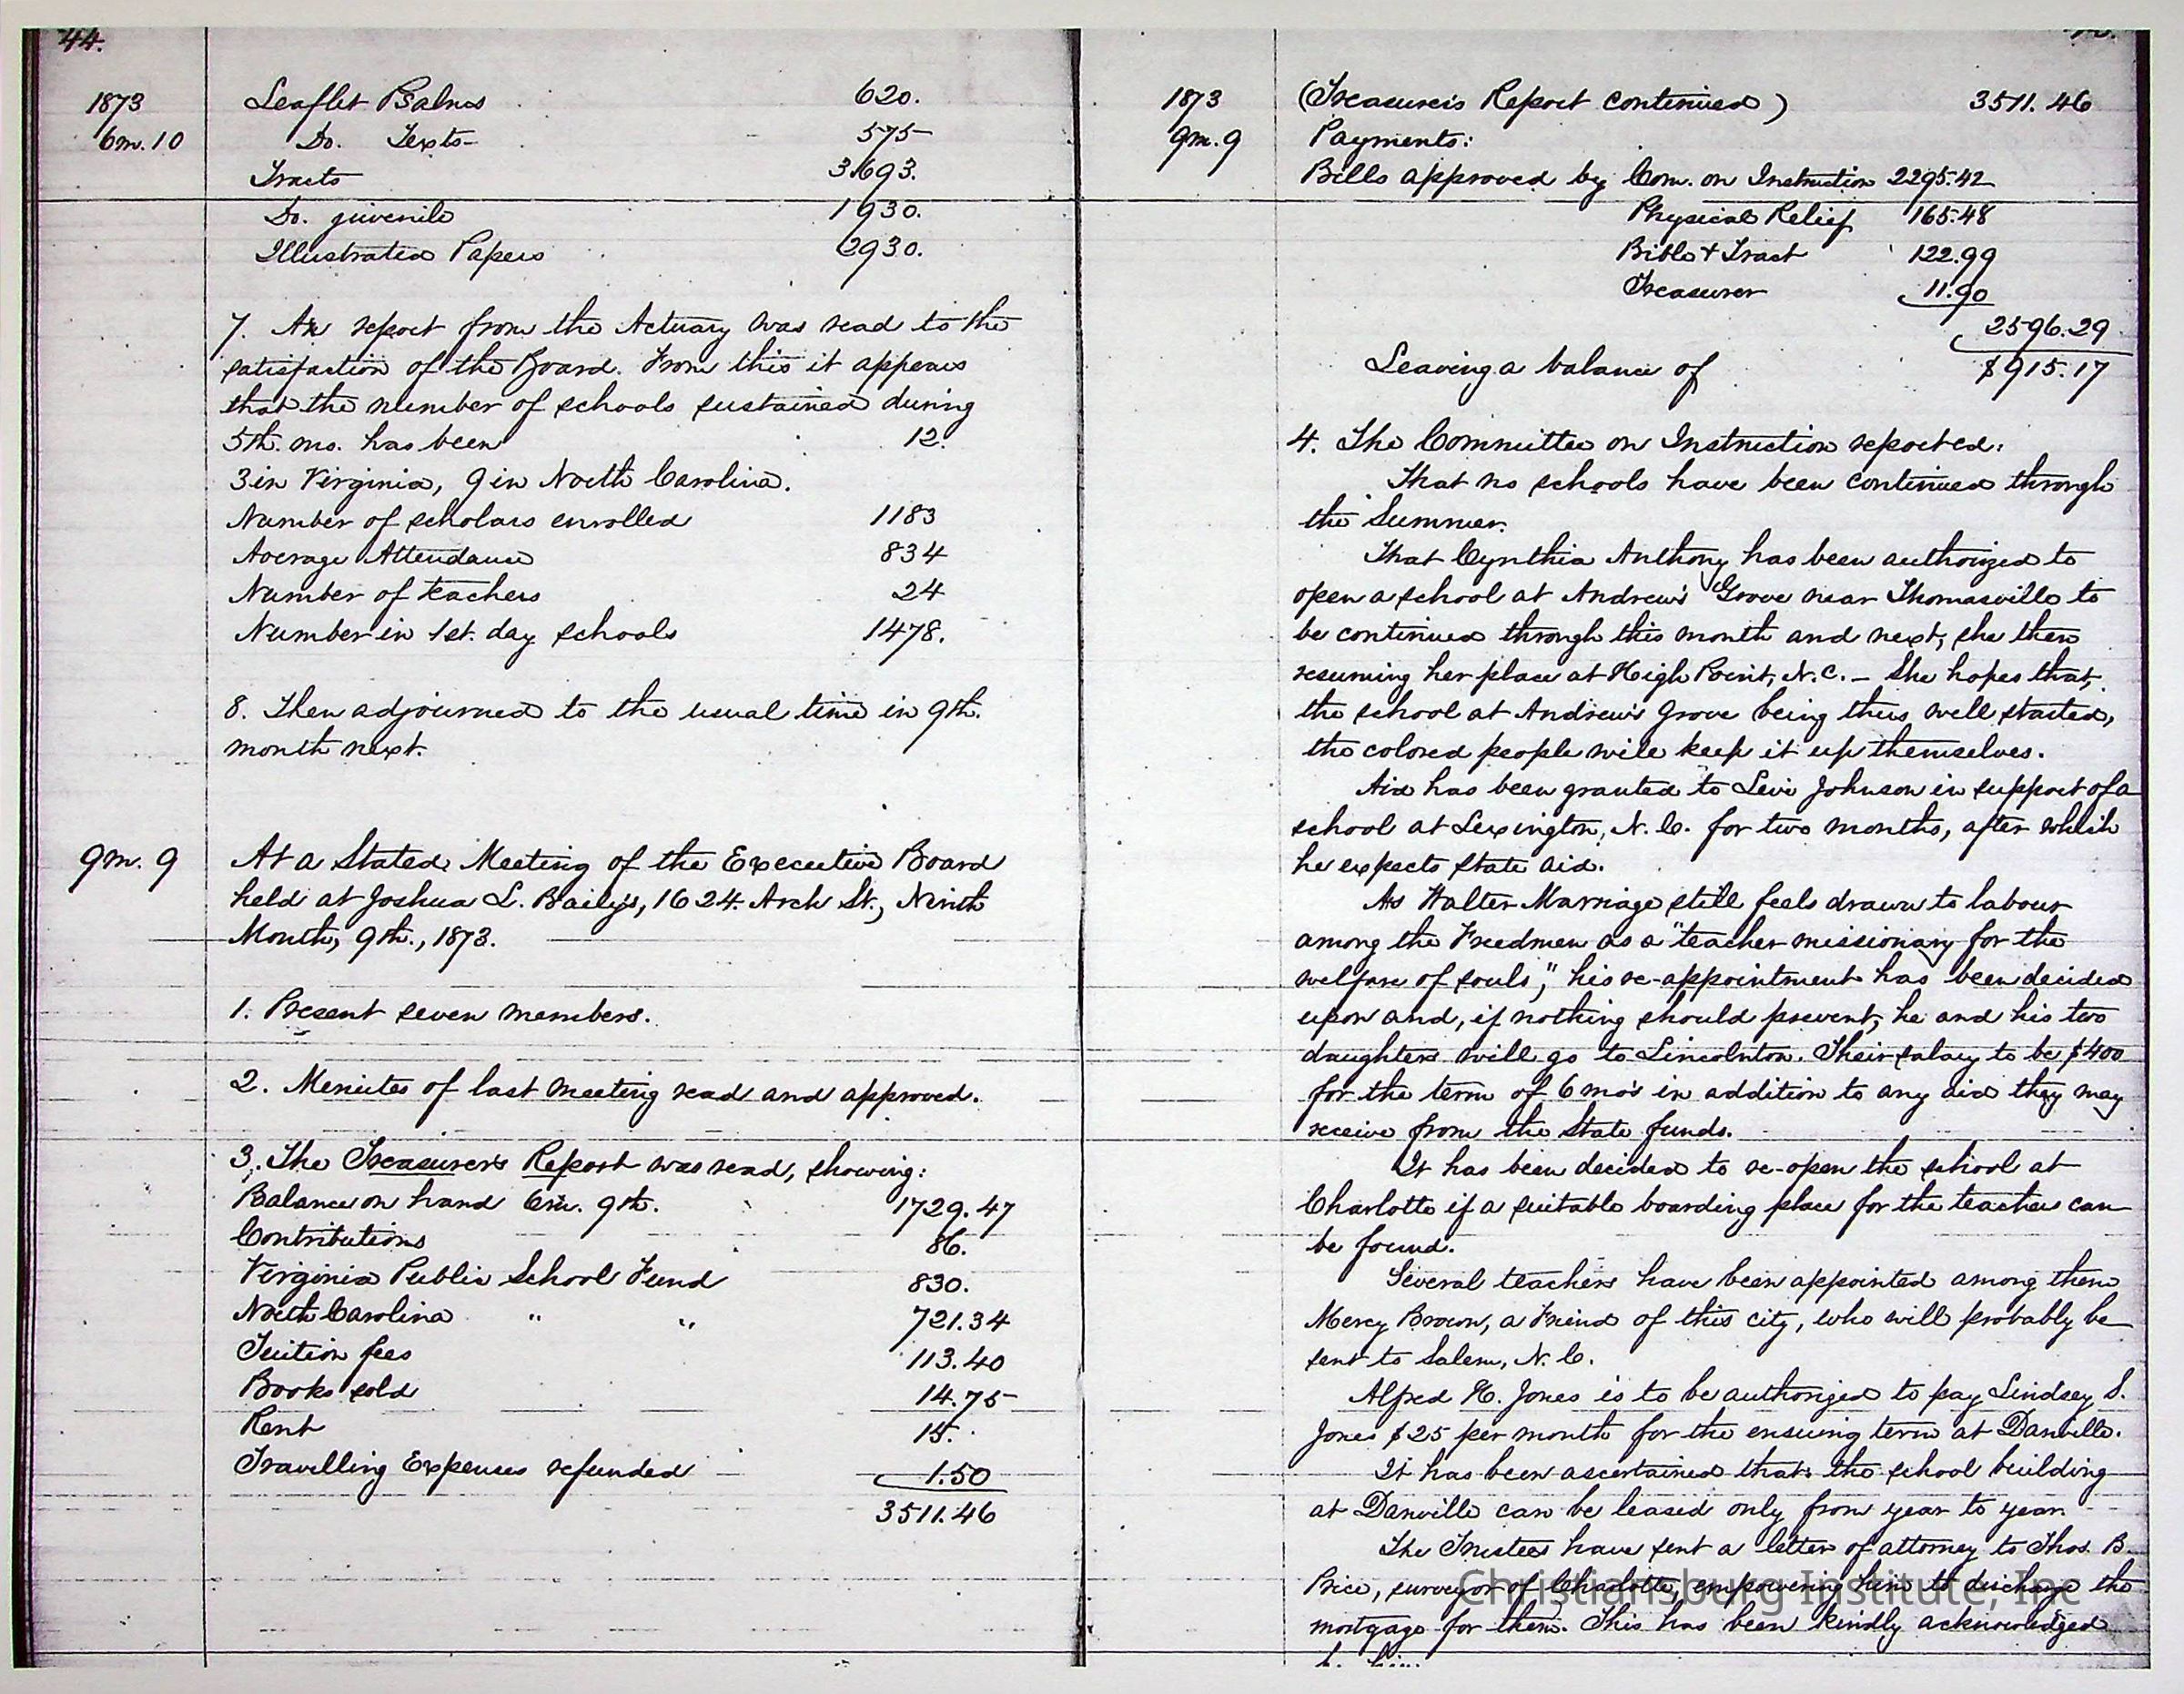 44.
1873
6m. 10
Leaflet Psalms 620.
Do. Texts 575
Tracts 3693.
Do. juvenile 1930.
Illustrated Papers 2930.
7. An report from the Actuary was read to the
satisfaction of the Board. From this it appears
that the number of schools sustained during
5th. mo. has been 12.
3 in Virginia, 9 in North Carolina.
Number of scholars enrolled 1183
Average Attendance 834
Number of teachers 24
Number in 1st. day schools 1478.
8. Then adjourned to the usual time in 9th.
month next.
9m. 9
At a Stated Meeting of the Executive Board
held at Joshua L. Baily's, 1624 Arch St., Ninth
Month, 9th., 1873.
1. Present seven members.
2. Minutes of last meeting read and approved.
3. The Treasurer's Report was read, showing:
Balance on hand 6m. 9th. 1729.47
Contributions 86.
Virginia Public School Fund 830.
North Carolina " " 721.34
Tuition fees 113.40
Books sold 14.75
Rent 15.
Travelling Expenses refunded 1.50
3511.46
1873
9m. 9
(Treasurer's Report continued) 3511.46
Payments:
Bills approved by Com. on Instruction 2295.42
Physical Relief 165.48
Bible & Tract 122.99
Treasurer 11.90
2596.29
Leaving a balance of $915.17
4. The Committee on Instruction reported:
That no schools have been continued through
the Summer.
That Cynthia Anthony has been authorized to
open a school at Andrew's Grove near Thomasville to
be continued through this month and next, she then
resuming her place at High Point, N.C. - She hopes that,
the school at Andrew's Grove being thus well started,
the colored people will keep it up themselves.
Aid has been granted to Levi Johnson in support of a
school at Lexington, N.C. for two months, after which
he expects state aid.
As Walter Marriage still feels drawn to labour
among the Freedmen as a "teacher missionary for the
welfare of souls", his re-appointment has been decided
upon and, if nothing should prevent, he and his two
daughters will go to Lincolnton. Their salary to be $400
for the term of 6 mos in addition to any aid they may
receive from the State funds.
It has been decided to re-open the school at
Charlotte if a suitable boarding place for the teachers can
be found.
Several teachers have been appointed among them
Mercy Brown, a Friend of this city, who will probably be
sent to Salem, N.C.
Alfred H. Jones is to be authorized to pay Lindsey S.
Jones $25 per month for the ensuing term at Danville.
It has been ascertained that the school building
at Danville can be leased only from year to year.
The Trustees have sent a letter of attorney to Thos. B.
Price, surveyor of Charlotte, empowering him to discharge the
mortgage for them. This has been kindly acknowledged
Christiansburg Institute, Inc